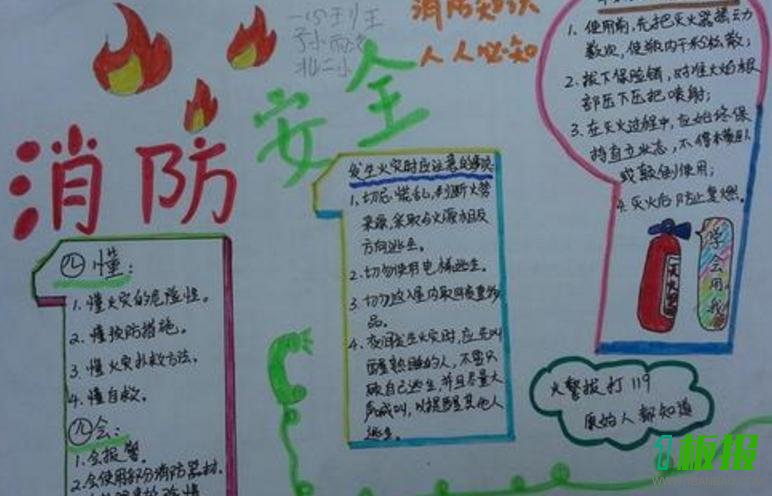 消防安全
消防知识
人人必知
四懂：
1. 懂火灾的危险性。
2. 懂预防措施。
3. 懂火灾扑救方法。
4. 懂自救。
四会：
1. 会报警。
2. 会使用部分消防器材.
发生火灾时应注意的事项
1. 切忌慌乱,判断火势
来源,采取与火源相反
方向逃生。
2. 切勿使用电梯逃生。
3. 切勿返入屋内取回贵重物
品。
4. 夜间发生火灾时,应先叫
醒熟睡的人,不要只
顾自己逃生,并且尽量大
声喊叫,以提醒其他人
逃生。
1. 使用前,先把灭火器摇动
数次,使瓶内干粉松散;
2. 拔下保险销,对准火焰根
部压下压把喷射;
3. 在灭火过程中,应始终保
持直立状态,不得横卧
或颠倒使用;
4. 灭火后防止复燃。
灭火器
学会用我
火警拨打119
原始人都知道
1板报
WWW.1BANBAO.COM